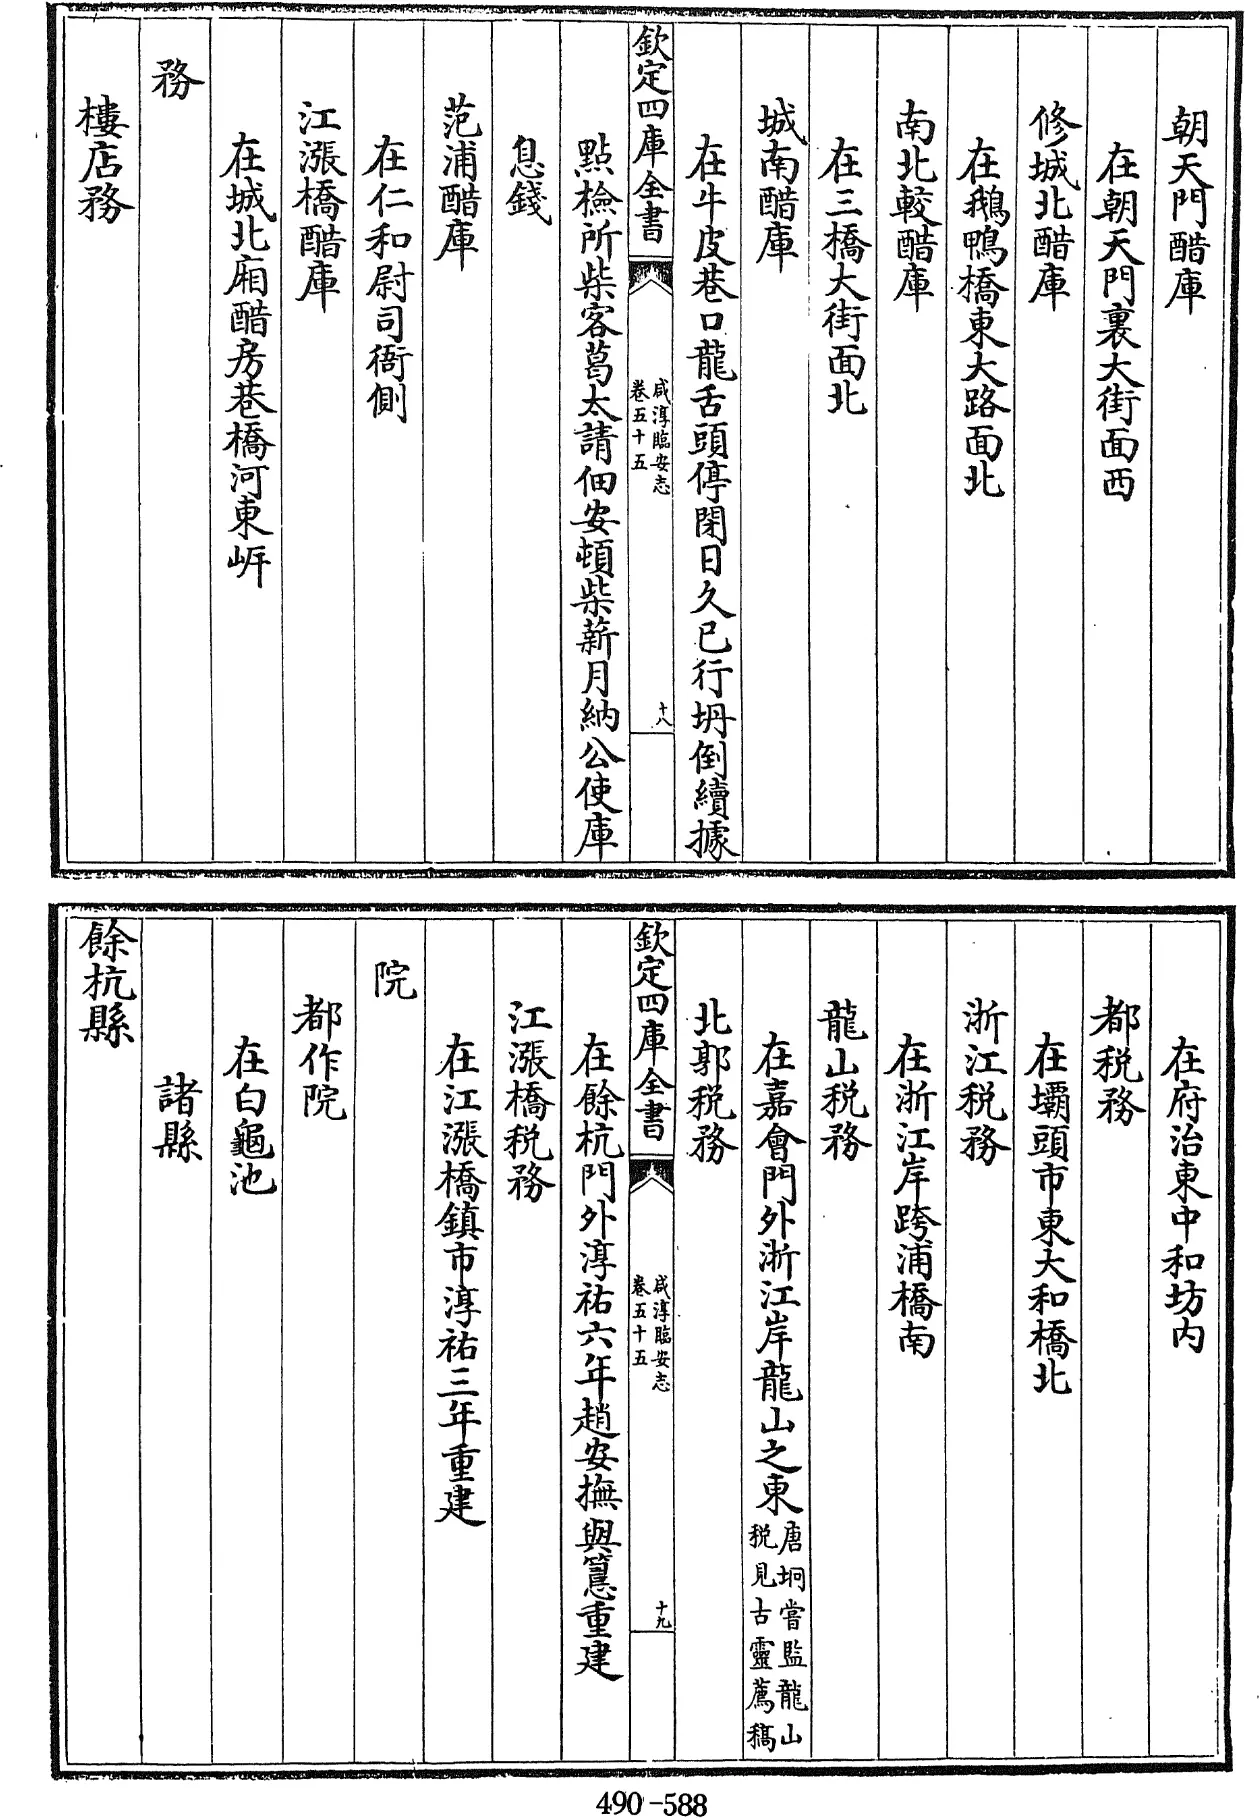 朝天門醋庫
在朝天門裏大街面西
修城北醋庫
在鵝鴨橋東大路面北
南北較醋庫
在三橋大街面北
城南醋庫
在牛皮巷口龍舌頭停閉日久已行坍倒續據
欽定四庫全書
咸淳臨安志
卷五十五
十八
點檢所柴客葛太請佃安頓柴薪月納公使庫
息錢
范浦醋庫
在仁和尉司衙側
江漲橋醋庫
在城北廂醋房巷橋河東岍
務
樓店務
在府治東中和坊内
都税務
在壩頭市東大和橋北
浙江税務
在浙江岸跨浦橋南
龍山税務
在嘉會門外浙江岸龍山之東
唐坰嘗監龍山
税見古靈薦稿
北郭税務
欽定四庫全書
咸淳臨安志
卷五十五
十九
在餘杭門外淳祐六年趙安撫與𥲅重建
江漲橋税務
在江漲橋鎮市淳祐三年重建
院
都作院
在白龜池
諸縣
餘杭縣
490-588